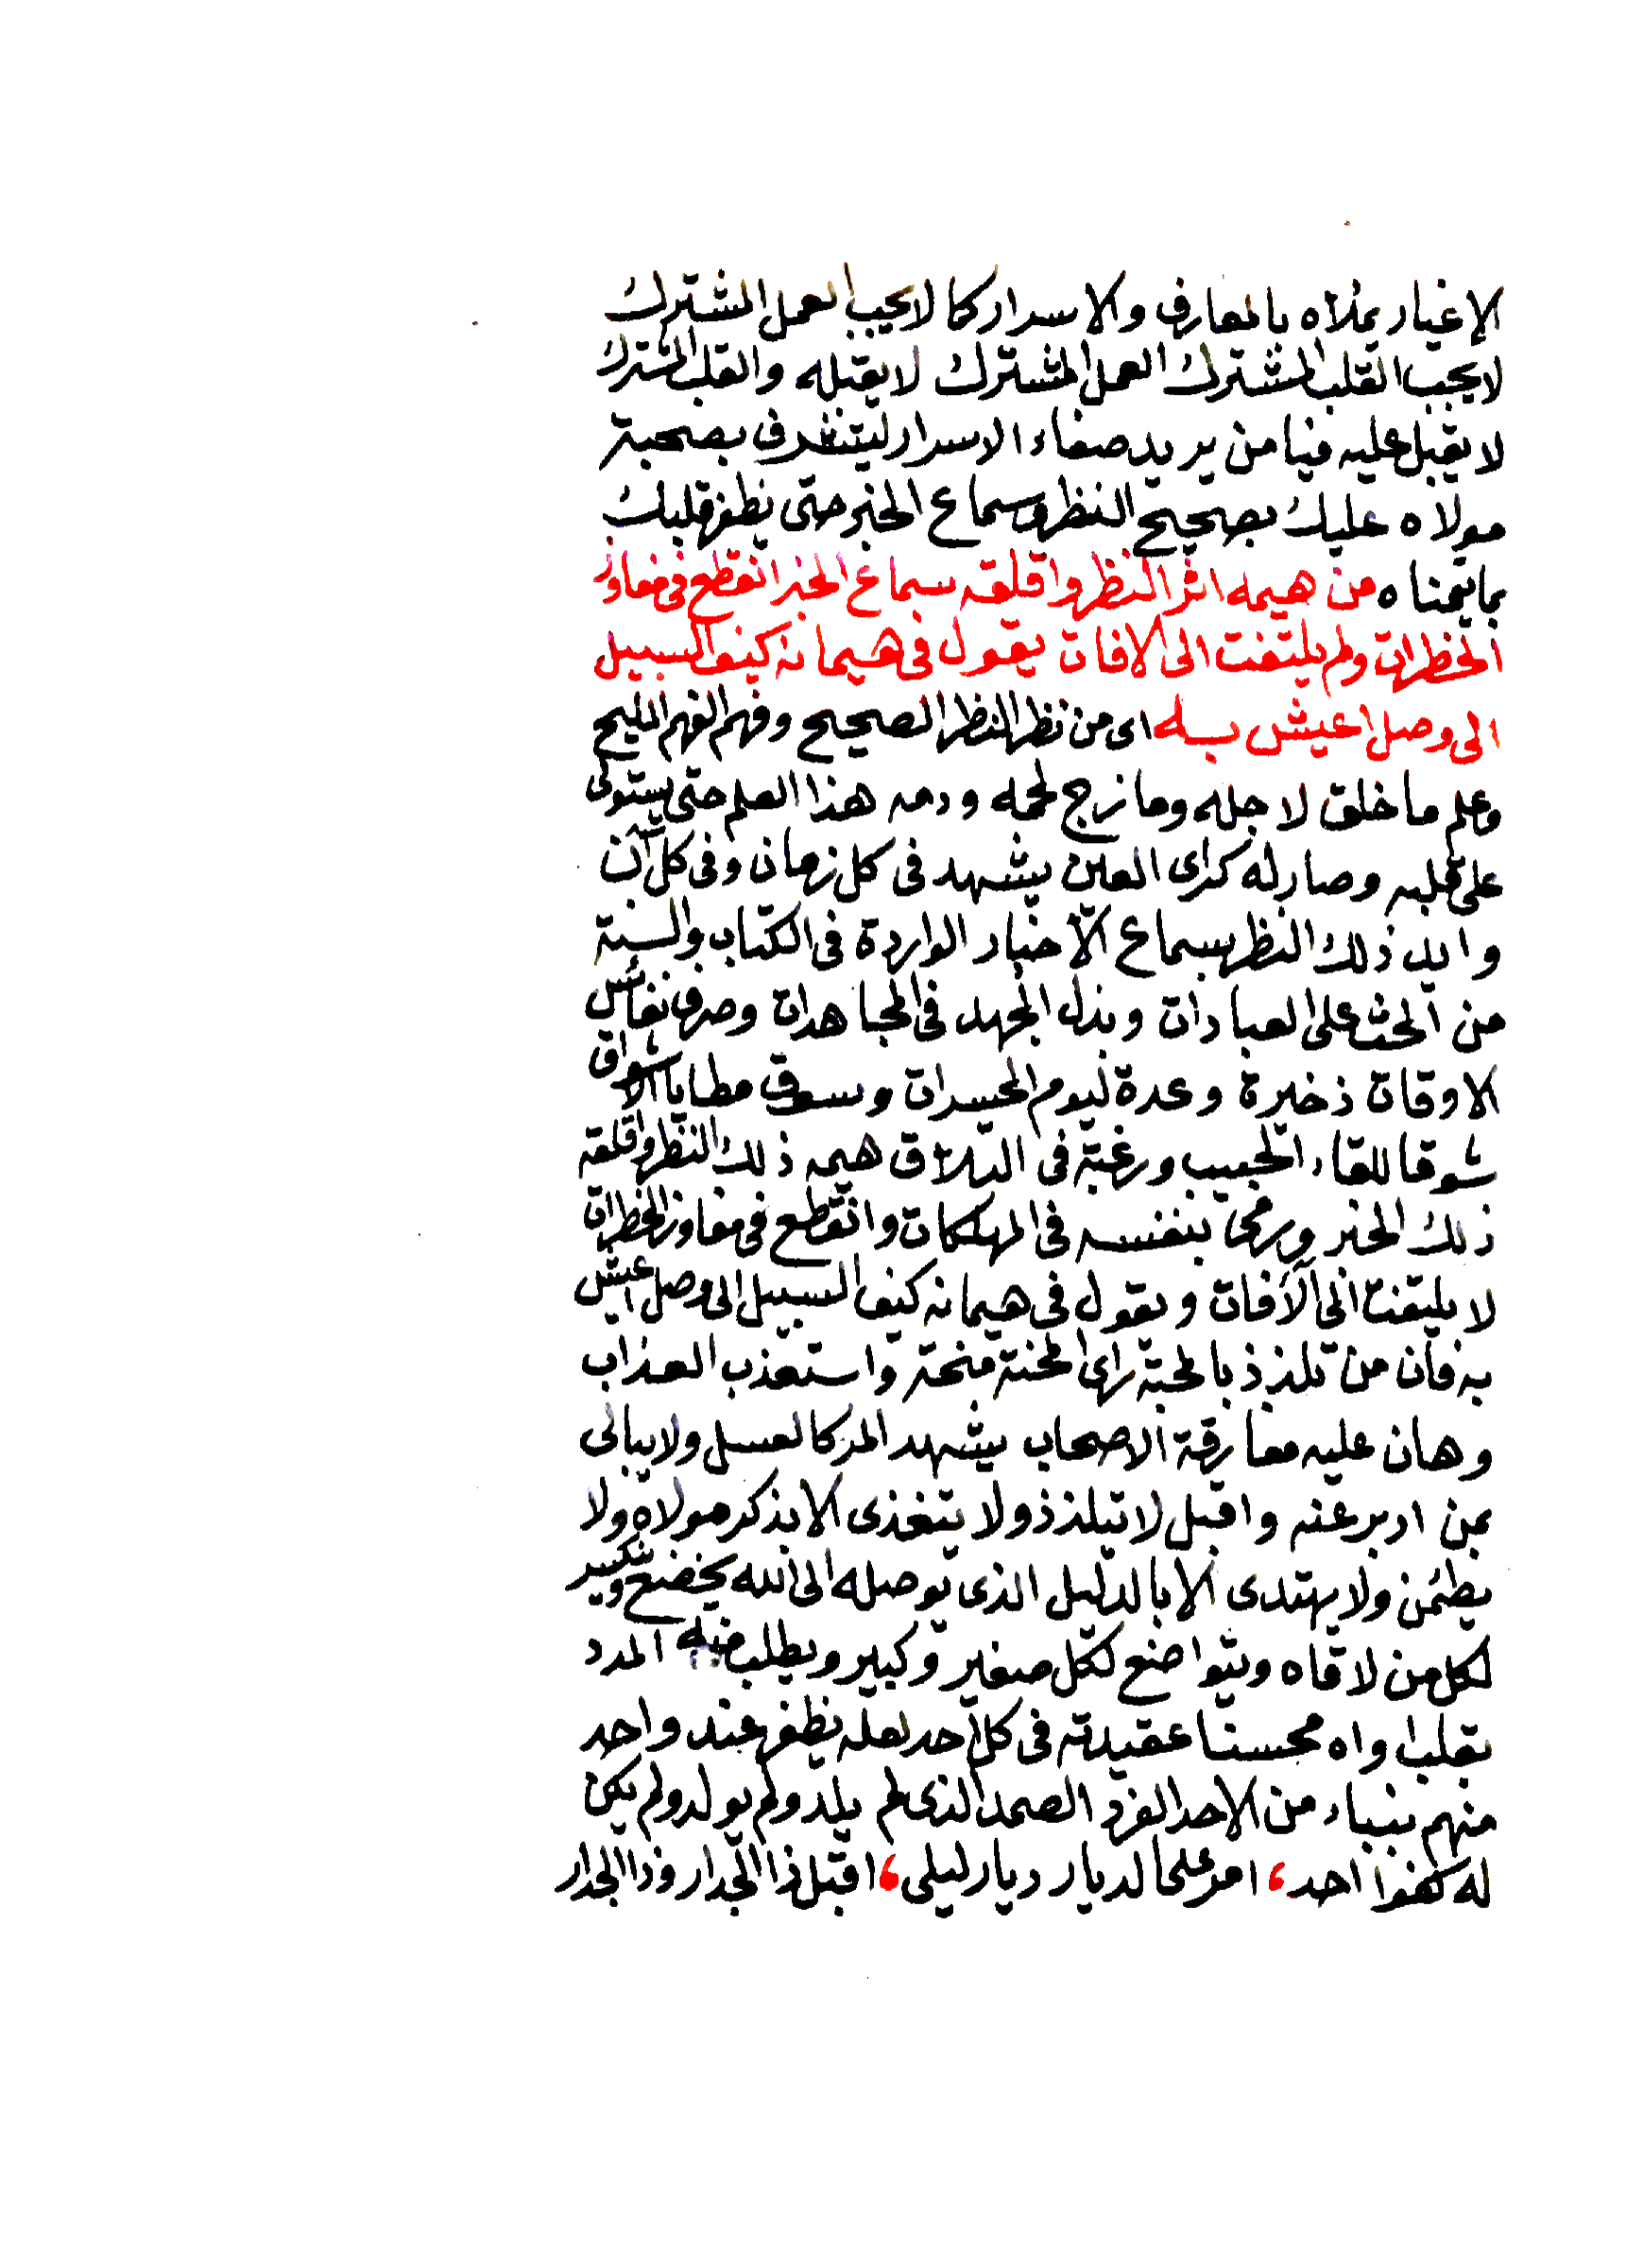 الاغيار يملأه بالمعارف والاسرار كما لا يحب العمل المشترك
لا يحب القلب المشترك العمل المشترك لا يقبله والقلب المشترك
لا يقبل عليه فيا من يريد صفاء الاسرار ليتشرف بصحبة
مولاه عليك بصحيح النظر وسماع الخبر حتى يظفر قلبك
بما يتمناه من هيمه اثر النظر واقلقه سماع الخبر انقطع في مفاوز
الخطرات ولم يلتفت الى الافات يقول في هيمانه كيف السبيل
الى وصل اعيش به اى من نظر النظر الصحيح وفهم الفهم المليح
وعلم ما خلق لاجله ومازج لحمه ودمه هذا العلم حتى يستولى
على قلبه وصار له كراى العين يشهد فى كل زمان وفى كل آن
وايد ذلك النظر بسماع الاخبار الواردة فى الكتاب والسنة
من الحث على العبادات وبذل الجهد فى المجاهدات وصرف نفائس
الاوقات ذخيرة وعدة ليوم الحسرات وسوق مطايا الاشواق
شوقا للقاء الحبيب ورغبة فى التلاق هيمه ذلك النظر واقلقه
ذلك الخبر ورمى بنفسه فى المهلكات وانقطع فى مفاوز الخطرات
لا يلتفت الى الآفات ويقول فى هيمانه كيف السبيل الى وصل اعيش
به فان من تلذذ بالمحبة راى المحنة منحة واستعذب العذاب
وهان عليه مفارقة الاصحاب يشهد المر كالعسل ولا يبالى
بمن ادبر عنه واقبل لا تيلذذ ولا يتغذى الا بذكر مولاه ولا
يطئمن ولا يهتدى الا بالدليل الذى يوصله الى الله يخضع وينكسر
لكل من لاقاه ويتواضع لكل صغير وكبير ويطلب منه المدد
بقلب اواه محسنا عقيدته فى كل احد لعله يظفر عند واحد
منهم بنباء من الاحد الفرد الصمد الذى لم يلد ولم يولد ولم يكن
له كفوا احد، امر على الديار ديار ليلى، اقبل ذا الجدار وذا الجدار